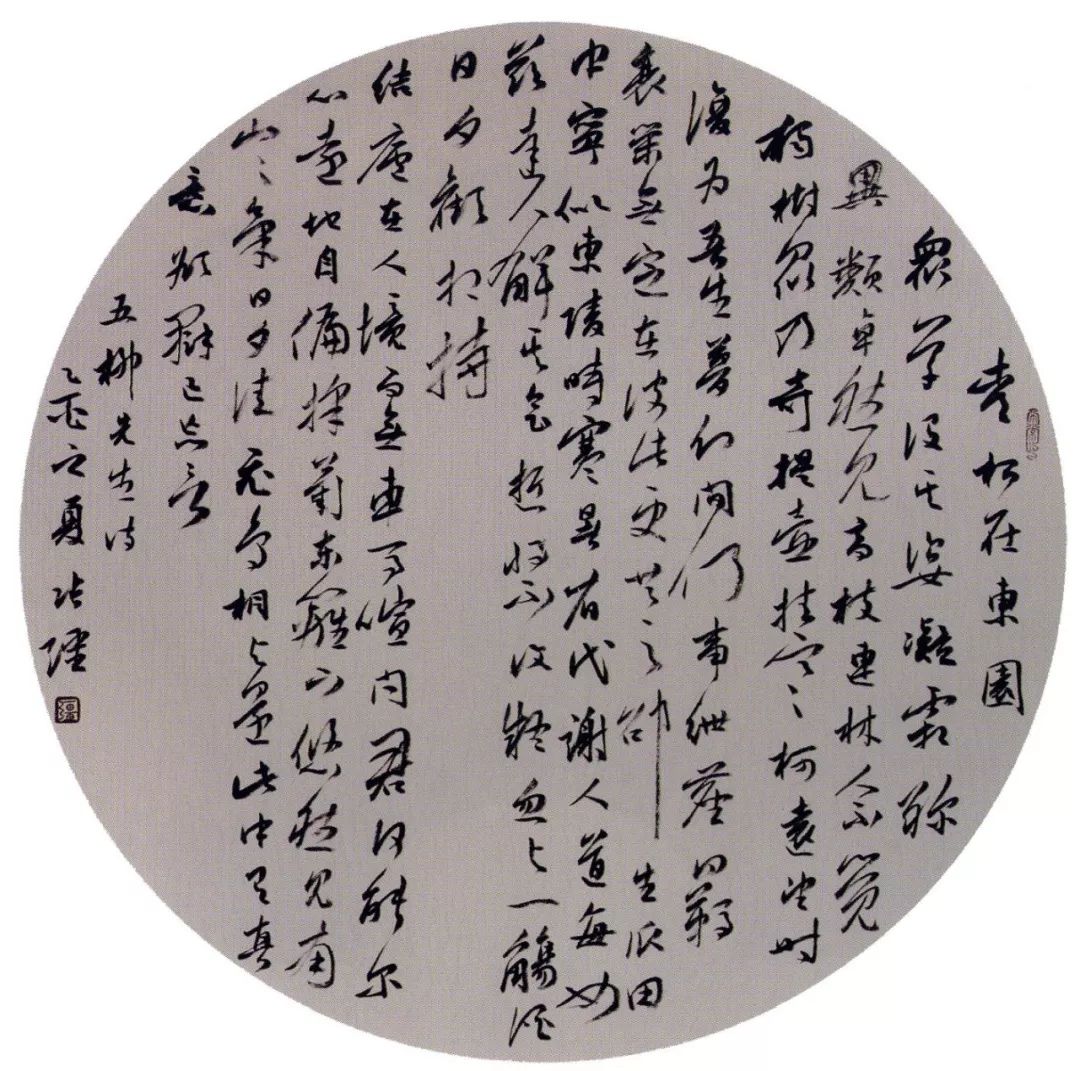 青松在東園
眾草沒其姿凝霜殄
異類卓然見高枝連林人不覺
獨樹眾乃奇提壺挂寒柯遠望時
復為吾生夢幻間何事紲塵羈
衰榮無定在彼此更共之邵生瓜田
中寧似東陵時寒暑有代謝人道每如
茲達人解其會逝將不復疑忽與一觴酒
日夕歡相持
結廬在人境而無車馬喧问君何能尔
心遠地自偏採菊東籬下悠然見南
山〻氣日夕佳飛鳥相與還此中有真
意欲辯已忘言
五柳先生詩
乙亥之夏